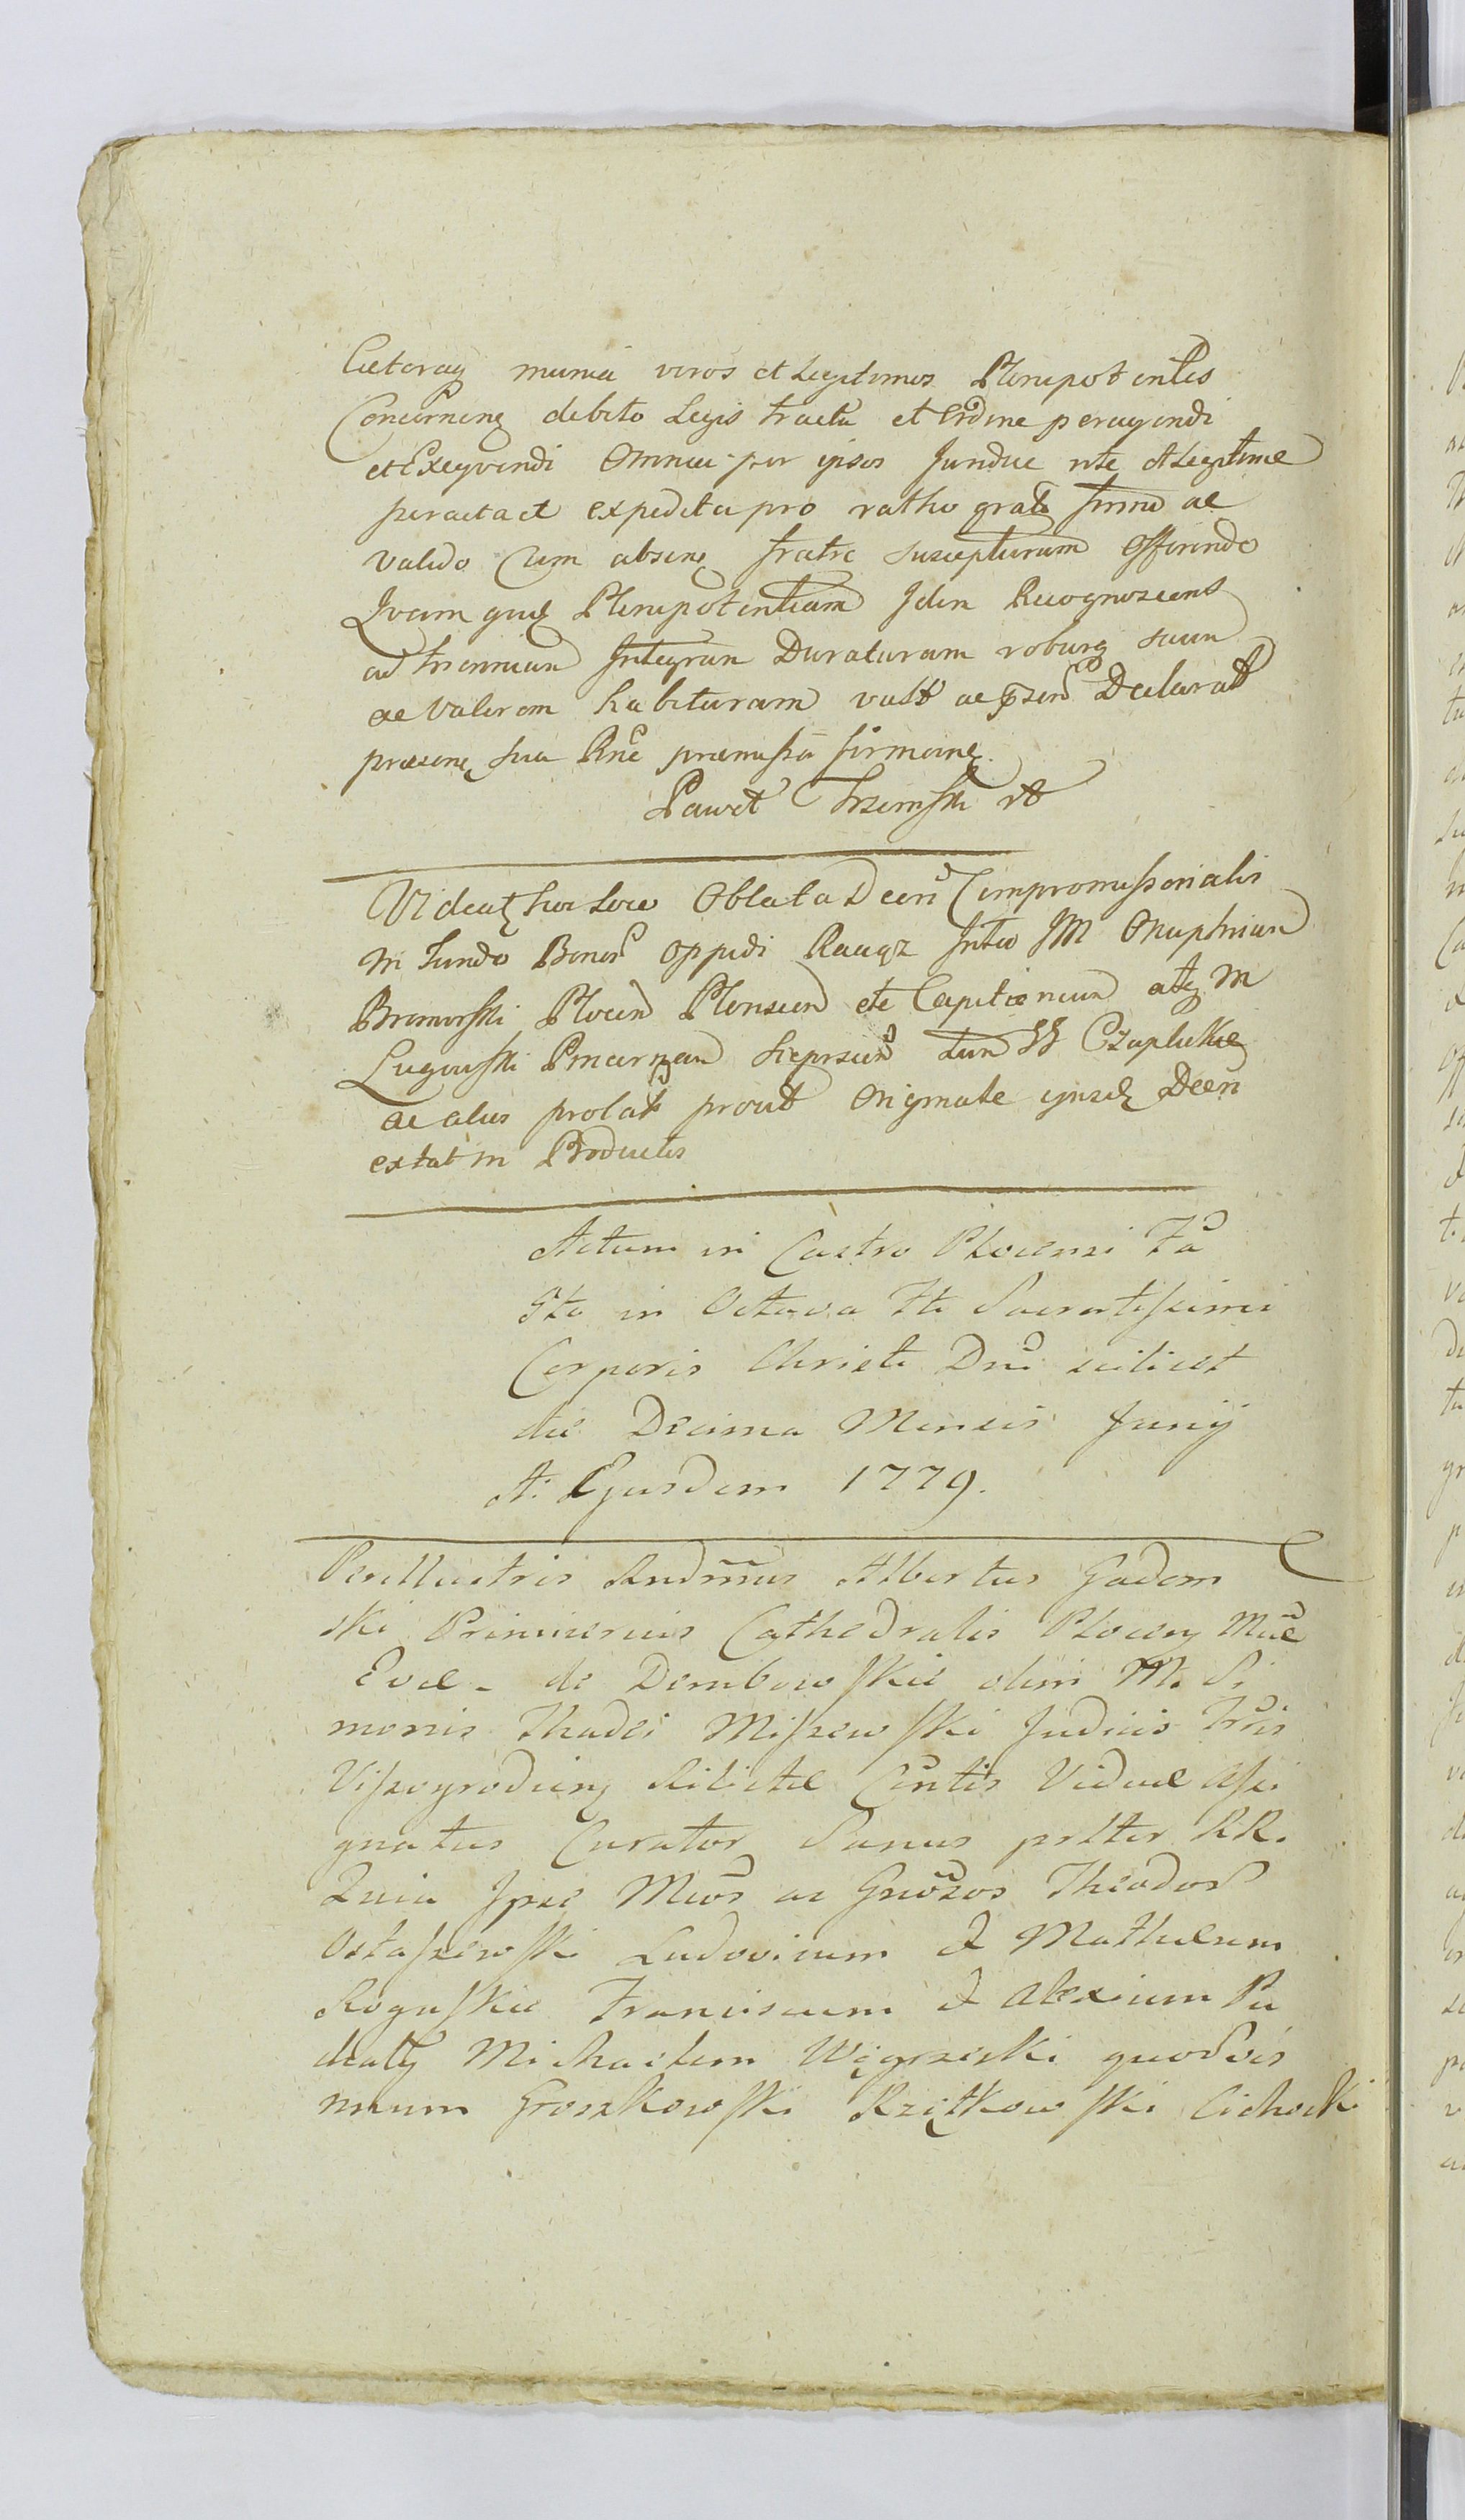 Cæteraq munia veros et Legitimos Plenipotentes
Concernenq debito Legis tractu et Ordine peragendi
et Exeqvendi Omnia per ipsos Jundice rite et Legitime
peracta et expedita pro ratho grato firmo ac
valido Cum absenq fratre suscepturum Offerendo
Qvam quid Plenipotentiam Idem Recognoscens
ad triennium Integrum Duraturam roburq suum
ac Valorem habituram vult ac Declarat
præsenq sua Rne præmissa firmoinq
Paweł Trzcinski
Videatq hoc Loco Oblata Decri Compromissorialis
in Fundo Bonor Oppidi Raciąz Inter Onuphrium
Bromirski Płocen Plonscen etc Capitaneum atq M
Lugowski tum Czaplickie
ac alios prolat prout Originale ejusd Decri
extat in Productis
Actum in Castro Plocensi Fa
5ta in Octava Fti Sacratissimi
Corporis Christi Dni scilicet
die Decima Mensis Junij
A: Ejusdem 1779.
Perillustris Rndmus Albertus Gadom
ski Primicerius Cathedralis Plocenq Mcæ
Evæ - de Dembowskie olim M. Si
monis Thadei Miszewski Judicis Tris
Viszogrodienq Relictæ Cintis Viduæ Assi
gnatus Curator Sanus prltter RR.
Quia Ipse Mcos ac Gnosos Theodor
Ostaszewski Ludovicum et Mathæum
Roguskie Franciscum et Alexium Pu
deatq Michaelem Węgrzecki quodvis
mnum Groszkowski Rziątkowski Cichocki